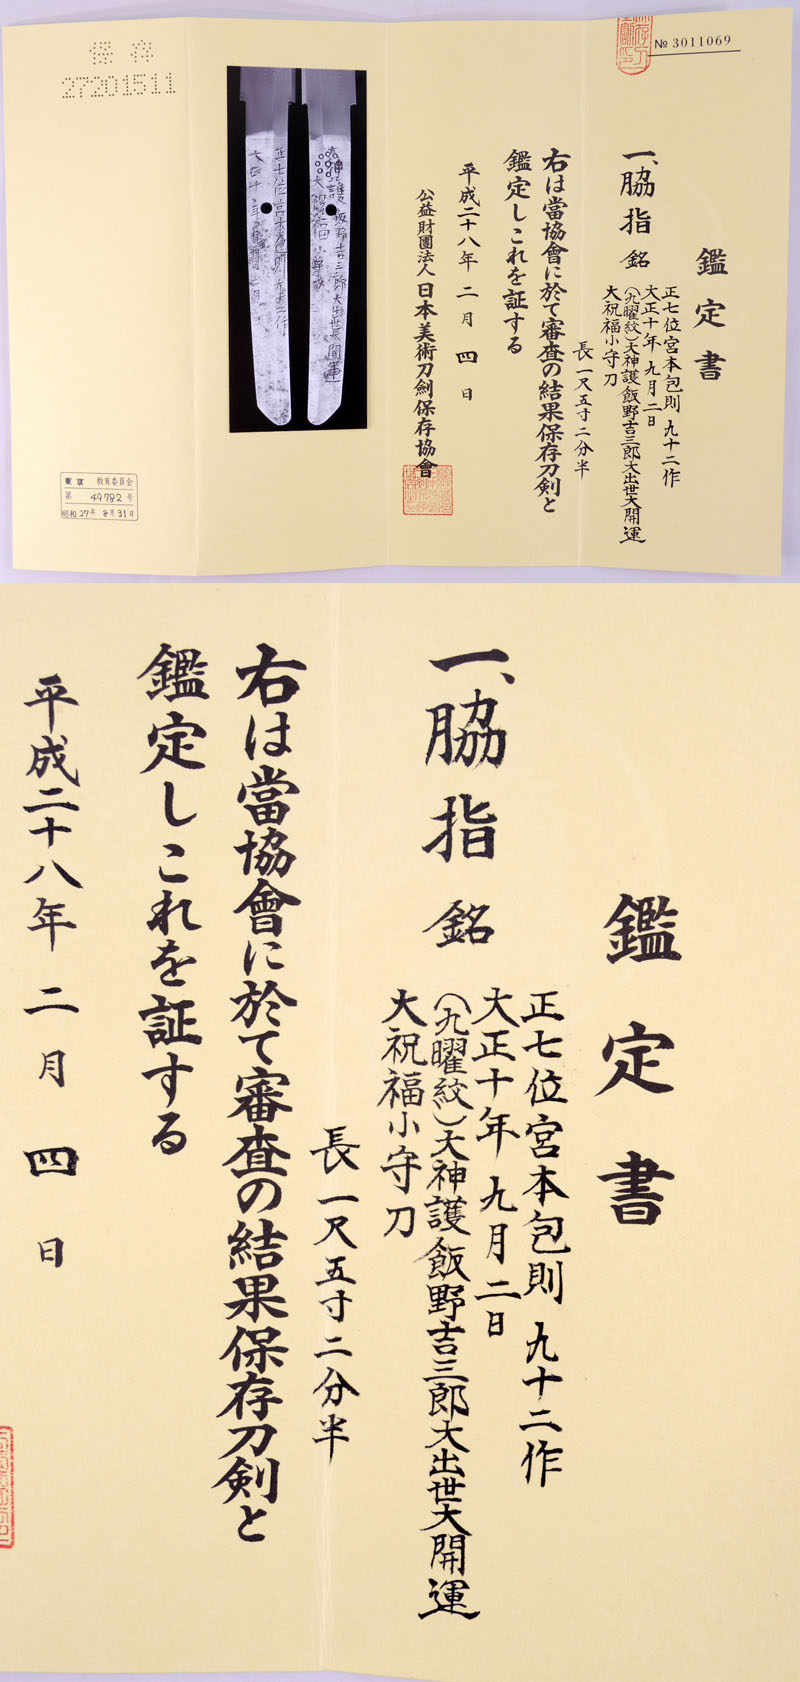 № 3011069
鑑定書
一、脇指 銘
正七位宮本包則 九十二作
大正十年 九月二日
(九曜紋)天神護飯野吉三郎大出世大開運
大祝福小守刀
長 一尺五寸二分半
右は當協會に於て審査の結果保存刀剣と
鑑定しこれを証する
平成二十八年 二月 四日
公益財團法人 日本美術刀劍保存協會
保存
27201511
東京 教育委員会
第 49782 号
昭和 27年 8月 31日
鑑定書
一、脇指 銘
正七位宮本包則 九十二作
大正十年 九月二日
(九曜紋)天神護飯野吉三郎大出世大開運
大祝福小守刀
長 一尺五寸二分半
右は當協會に於て審査の結果保存刀剣と
鑑定しこれを証する
平成二十八年 二月 四日